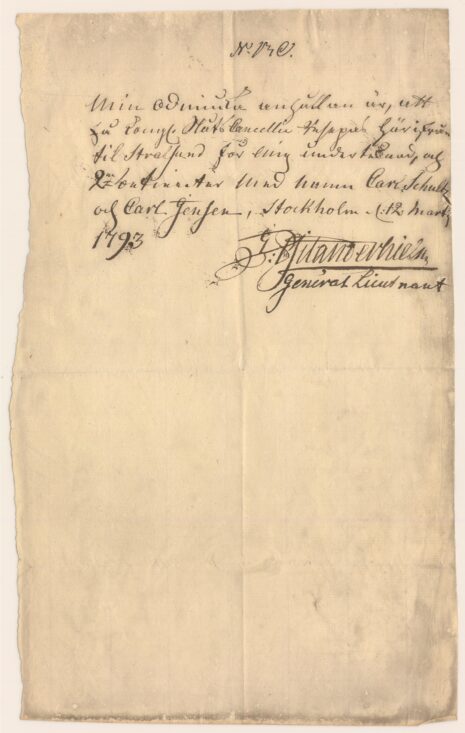 Nº 173 C.
Min ödmiuka anhållan är, att
få Kongl. Slåts Cancellie Resepass härifrån
til Stralsund för mig undertecknad, och
2ne Domestiquer med namn Carl Schultz
och Carl Jensen, Stockholm d. 12 Martj
1793
General Lieutnant